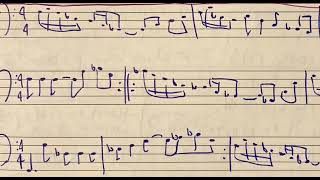 4
4
4
4
4
4